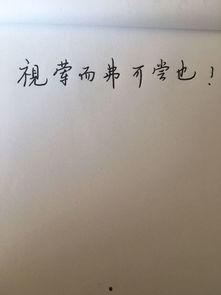 視葷而弗可尝也！